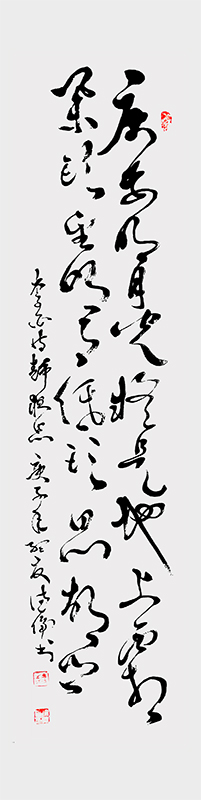 床前明月光疑是地上霜
舉頭望明月低頭思故鄉
李白诗静夜思庚子年夏书